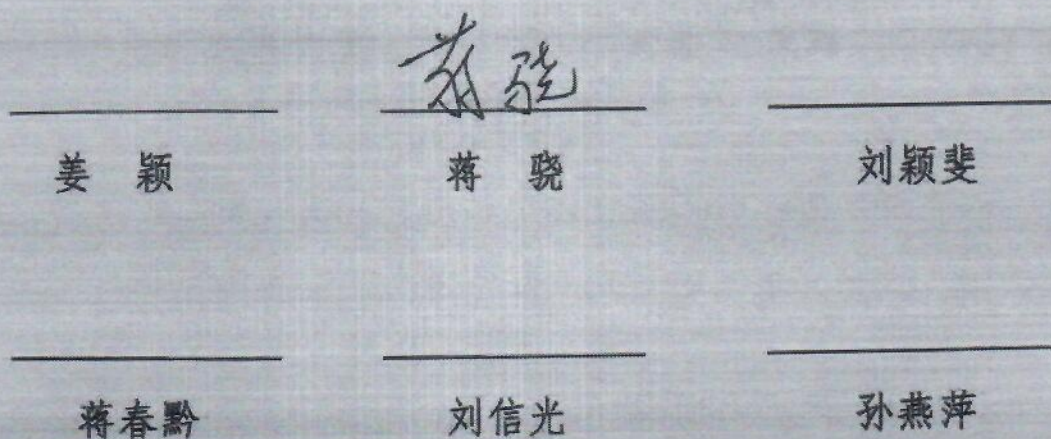 蒋骁
姜颖 蒋骁 刘颖斐
蒋春黔 刘信光 孙燕萍